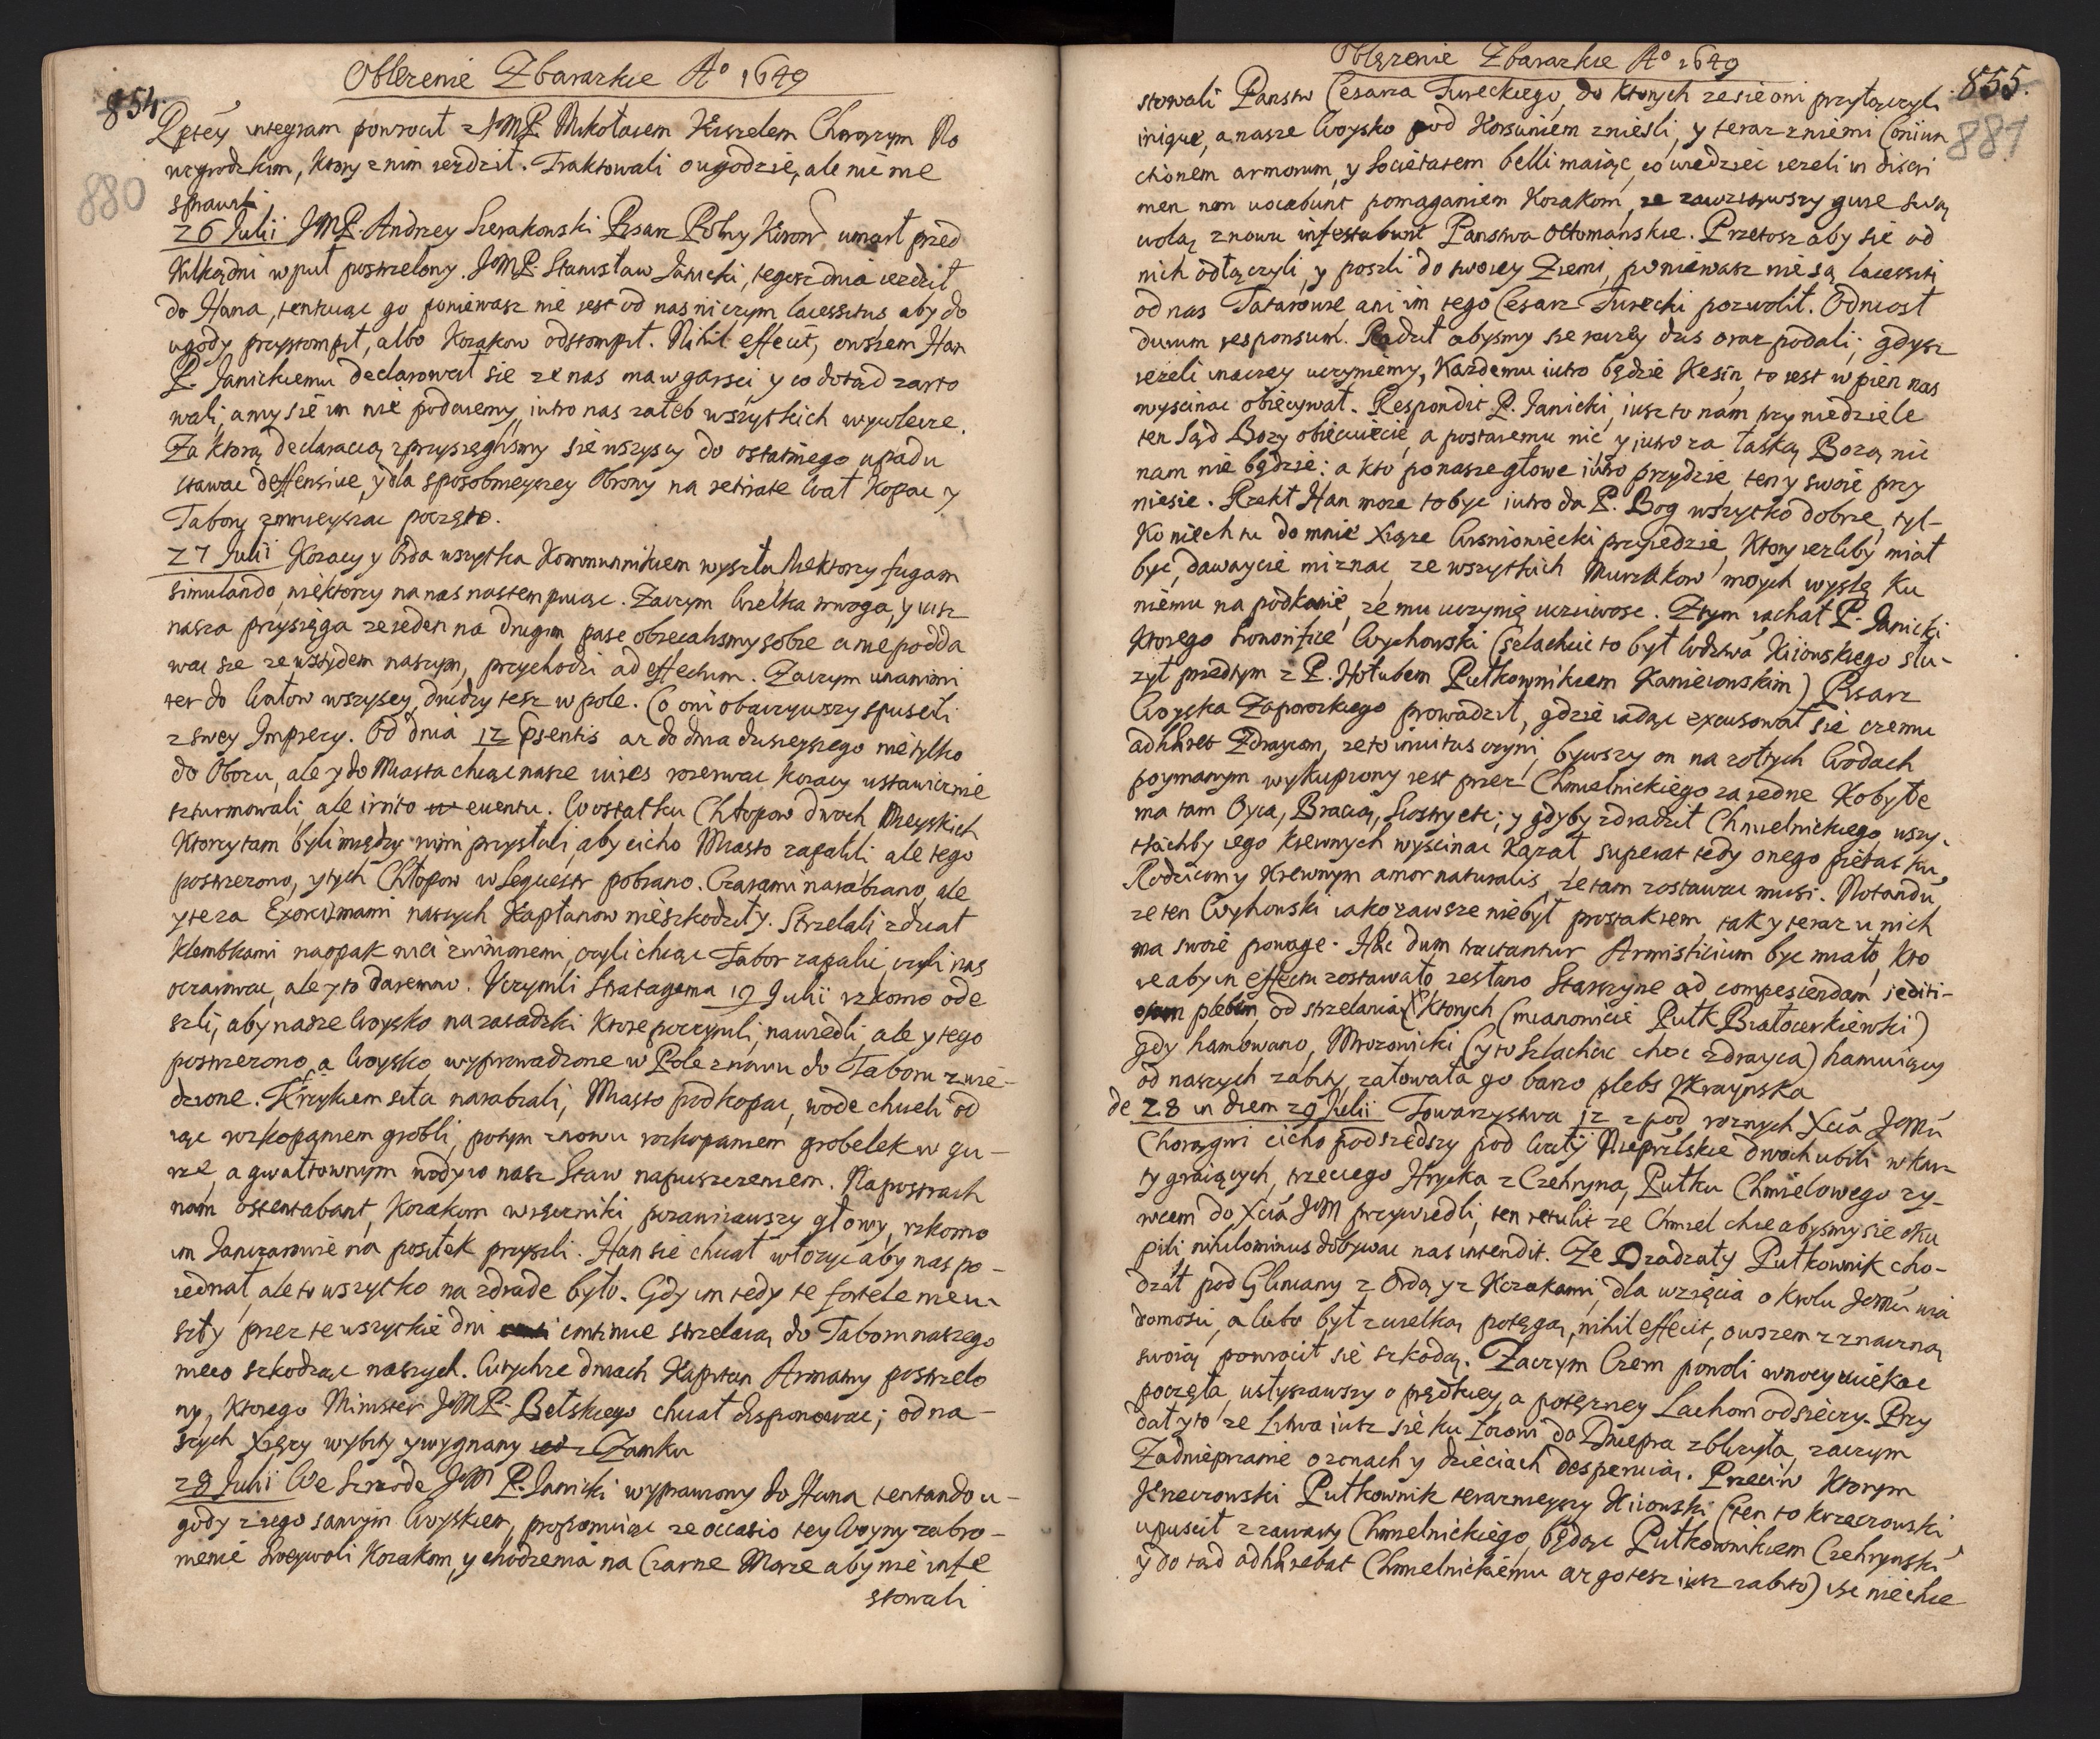 Oblezenie Zbarazkie Aº 1649
854.
880
Rptey integram powrocil z JMP. Mikołaiem Kiszelem Chorązym No
wogrodzkim, ktory z nim iezdził. Traktowali o ugodzie, ale nie nie
sprawili
26 Julii JMP. Andrzey Sierakowski Pisarz Polny Koron umarł przed
kilką dni wpuł postrzelony. JMP. Stanisław Janicki, tegosz dnia iezdził
do Hana, tentuiąc go poniewasz nie iest od nas niczym lacessitus aby do
ugody przystompił, albo Kozakow odstompił. Nihil effecit, owszem Han
P. Janickiemu declarował się ze nas ma w garsci y co dotąd zarto
wali, a my się im nie podaiemy, iutro nas za łeb wszystkich wywlecze.
Za ktorą declaracią zprzysięglismy się wszyscy do ostatniego upadu
stawac deffensive, y dla sposobnieyszey Obrony na retirate Wał kopac y
Tabory zmnieyszac poczęto.
27 Julii Kozacy y Orda wszytka Kommunnikiem wyszła, Niektorzy fugam
simulando, niektorzy na nas nastempuiąc. Zaczym Wielka trwoga, y iusz
nasza przysięga ze ieden na drugim pasc obiecalismy sobie a nie podda
wac się ze wstydem naszym, przychodzi ad effectum. Zaczym unanimi
ter do Wałow wszyscy, drudzy tesz w pole. Co oni obaczywszy spuscili
z swey Imprezy. Od dnia 12 Psentis az do dnia dzisieyszego nie tylko
do Obozu, ale y do Miasta chcąc nasze vires rozerwac kozacy ustawicznie
szturmowali, ale irrito eventu. Wostatku Chłopow dwoch Mieyskich
Ktorzy tam byli między nimi przysłali, aby cicho Miasto zapalili ale tego
postrzezono, y tych Chłopow w Sequestr pobrano. Czarami narabiano, ale
y te za Exorcismami naszych Kapłanow nieszkodziły. Strzelali z dział
klembkami naopak nici zwinionemi, czyli chcąc Tabor zapalic, czyli nas
oczarowac, ale y to daremno. Uczynili Stratagema 19 Julii rzkomo ode
szli, aby nasze Woysko na zasadzki ktore poczynili, nawiedli, ale y tego
postrzezono, a Woysko wyprowadzone w Pole znowu do Taboru zwie-
dzione. Krzykiem siła narabiali, Miasto podkopac, wode chcieli od
iąc rozkopaniem grobli, potym znowu rozkopaniem grobelek w gu-
rze, a gwałtownym wody w nasz Staw napuszczeniem. Na postrach
nam ostentabant, Kozakom więźniki, pozawiiawszy głowy, rzkomo
im Janczarowie na posiłek przyszli. Han się chciał włozyc aby nas po-
iednał, ale to wszytko na zdrade było. Gdy im tedy te fortele nieu-
szły przez te wszytkie dni continue strzelaią do Taboru naszego
nieco szkodząc naszych. Wtychze dniach Kapitan Armatny postrzelo
ny, ktorego Minister JMP. Bełskiego chciał disponowac; od na-
szych Xięzy wybity y wygnany z Zamku
28 Julii We Srzode JM P. Janicki wyprawiony do Hana tentando u-
gody z iego samym Woyskiem, proponuiąc ze occasio tey Woyny zabro-
nienie Sweywoli Kozakom, y chodzenia na Czarne Morze aby nie infe
stowali
Oblęzenie Zbarazkie Aº 1649
855.
881
stowali Panstw Cesarza Tureckiego, do ktorych ze się oni przyłączyli
inique, a nasze Woysko pod Korsuniem zniesli, y teraz z niemi Coniun
ctionem armorum, y Societatem belli maiąc, co wiedziec iezeli in discri
men non vocabunt pomaganiem Kozakom, ze zawziąwszy gurę swą
wolą znowu infestabunt Panstwa Ottomanskie. Przetosz aby się od
nich odłączyli, y poszli do swoiey Ziemi, poniewasz nie są lacessiti
od nas Tatarowie, ani im tego Cesarz Turecki pozwolił. Odniosł
durum responsum. Radził abysmy sie raczey dzis oraz podali; gdysz
iezeli inaczey uczyniemy, Kazdemu iutro będzie Kesin, to iest w pien nas
wyscinac obiecywał. Respondit P. Janicki, iusz to nam przy niedziele
ten Sąd Bozy obiecuiecie, a postaremu nic, y iutro za łaską Bozą nic
nam nie będzie: a kto po nasze głowe iutro przydzie, ten y swoie przy
niesie. Rzekł Han moze to byc iutro da P. Bog wszytko dobrze, tyl-
ko niech tu do mnie Xiąze Wisniowiecki przyiedzie, ktory iezliby miał
byc, dawaycie mi znac, ze wszytkich Murzakow moych wyslę ku
niemu na podkanie, ze mu uczynię uczciwosc. Ztym iachał P. Janicki
ktorego honorifice Wychowski (szlachcic to był Wdztwa Kiiowskiego słu-
zył przedtym z P. Hołubem Pułkownikiem Kaniewskim) Pisarz
Woyska Zaporozkiego prowadził, gdzie iadąc excusował się czemu
adhaeret Zdraycom, ze to invitus czyni, bywszy on na zołtych Wodach
poymanym wykupiony iest przez Chmielnickiego za iedne Kobyłe
ma tam Oyca, Bracią, Siostry etc; y gdyby zdradził Chmielnickiego, wszy-
tkichby iego krewnych wyscinac kazał, superat tedy onego pietas ku
Rodzicom y Krewnym amor naturalis, ze tam zostawac musi. Notandũ,
ze ten Wyhowski iako zawsze niebył prostakiem, tak y teraz u nich
ma swoie powage. Hac dum tractantur Armisticium byc miało, kto
re aby in effectu zostawało, zesłano Starszyne ad compescendam sediti-
osam plebem, od strzelania (Ktorych (mianowicie Pułk Białocerkiewski)
gdy hamowano, Mrozowicki (y to Szlachcic choc zdrayca) hamuiący
od naszych zabity, załowała go barzo plebs Ukraynska
de 28 in diem 29 Julii Towarzystwa 12 z pod roznych Xcia JeMci
Chorągwi cicho podszedszy pod Wały Nieprzlskie dwoch ubili w kar
ty graiących, trzeciego Hrycka z Czehryna, Pułku Chmielowego zy-
wcem do Xcia JeM przywiedli, ten retulit ze Chmiel chce abysmy sie oku
pili nihilominus dobywac nas intendit. Ze Dzadzały Pułkownik cho-
dził pod Gliniany z Ordą y z Kozakami, dla wzięcia o Krolu JeMci wia
domosci, a lubo był z wielką potęgą, nihil effecit, owszem z znaczną
swoią powrocił się szkodą. Zaczym Czern powoli w nocy uciekac
poczęła, usłyszawszy o prędkiey, a potęzney Lachom odsieczy. Przy
dał y to ze Litwa iusz się ku Łoiow do Dniepra zblizyła, zaczym
Zadnieprzanie o zonach y dzieciach desperuią. Przeciw ktorym
Krzeczowski Pułkownik teraznieyszy Kiiowski (ten to Krzeczowski
upuscił z zawarty Chmielnickiego, będąc Pułkownikiem Czehrynski
y do tąd adhaerebat Chmielnickiemu az go tesz iusz zabito) isc nie chce